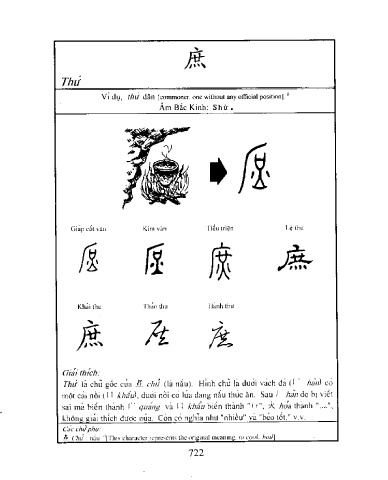 庶
Thứ
Ví dụ, thứ dân [commoner, one without any official position]
Âm Bắc Kinh: Shù.
Giáp cốt văn Kim văn Tiểu triện Lệ thư
Khải thư Thảo thư Hành thư
庶
Giải thích:
Thứ là chữ gốc của chử (là nấu). Hình chữ là dưới vách đá hán) có
một cái nồi khẩu), dưới nồi có lửa đang nấu thức ăn. Sau hán do bị viết
sai mà biến thành quảng và khẩu biến thành 火 hỏa thành "灬",
không giải thích được nữa. Còn có nghĩa như "nhiều" và "béo tốt," v.v.
Các chữ phụ:
Chử nấu [This character represents the original meaning, to cook, boil]
722